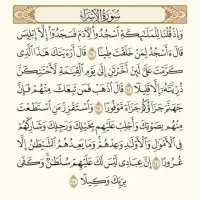 سُورَةُ الإِسْرَاءِ
وَإِذْ قُلْنَا لِلْمَلَٰٓئِكَةِ ٱسْجُدُوا۟ لِءَادَمَ فَسَجَدُوٓا۟ إِلَّآ إِبْلِيسَ
قَالَ ءَأَسْجُدُ لِمَنْ خَلَقْتَ طِينًا ٦١ قَالَ أَرَءَيْتَكَ هَٰذَا ٱلَّذِى
كَرَّمْتَ عَلَىَّ لَئِنْ أَخَّرْتَنِ إِلَىٰ يَوْمِ ٱلْقِيَٰمَةِ لَأَحْتَنِكَنَّ
ذُرِّيَّتَهُۥٓ إِلَّا قَلِيلًا ٦٢ قَالَ ٱذْهَبْ فَمَن تَبِعَكَ مِنْهُمْ فَإِنَّ
جَهَنَّمَ جَزَآؤُكُمْ جَزَآءً مَّوْفُورًا ٦٣ وَٱسْتَفْزِزْ مَنِ ٱسْتَطَعْتَ
مِنْهُم بِصَوْتِكَ وَأَجْلِبْ عَلَيْهِم بِخَيْلِكَ وَرَجِلِكَ وَشَارِكْهُمْ
فِى ٱلْأَمْوَٰلِ وَٱلْأَوْلَٰدِ وَعِدْهُمْ وَمَا يَعِدُهُمُ ٱلشَّيْطَٰنُ إِلَّا
غُرُورًا ٦٤ إِنَّ عِبَادِى لَيْسَ لَكَ عَلَيْهِمْ سُلْطَٰنٌ وَكَفَىٰ
بِرَبِّكَ وَكِيلًا ٦٥